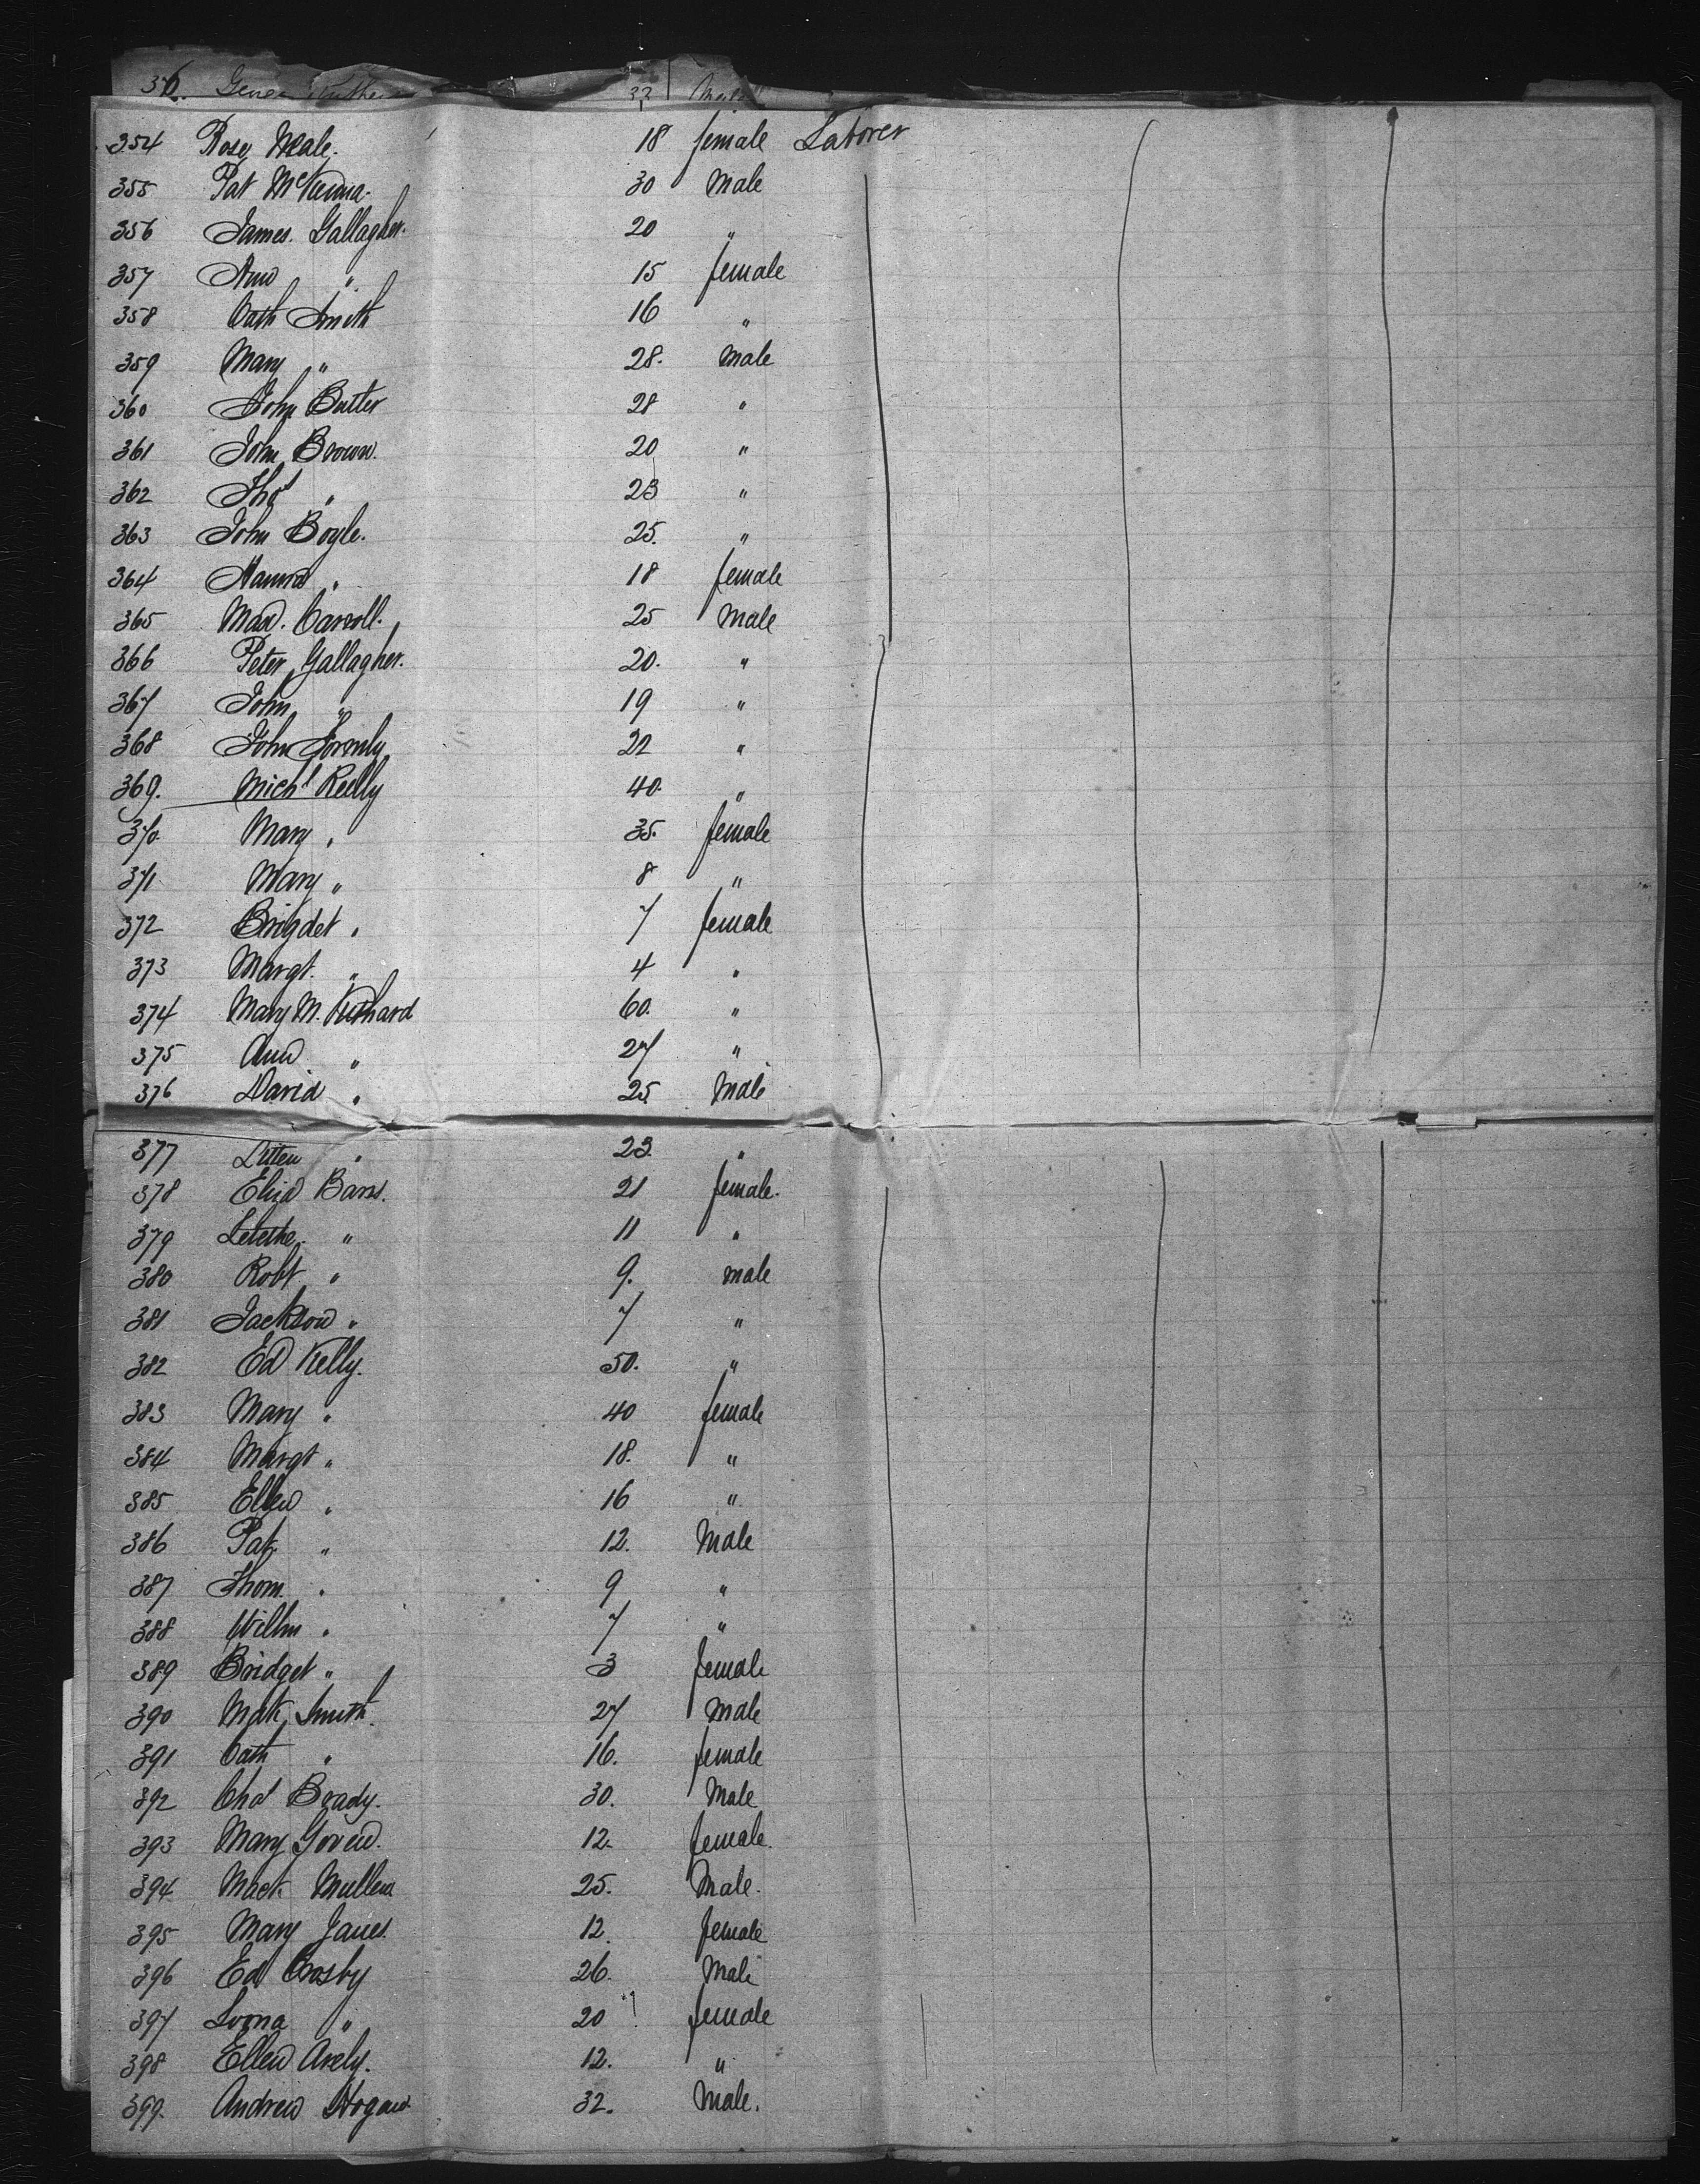 32
354 Rose Neale. 18 female Laborer
355 Pat McKenna. 30 Male
356 James. Gallagher. 20 "
357 Ann " 15 female
358 Cath Smith 16 "
359 Mary " 28. Male
360 John Butler 28 "
361 John Brown. 20 "
362 Thos " 23 "
363 John Boyle. 25. "
364 Hanna " 18 female
365 Carroll. 25 Male
366 Peter Gallagher. 20. "
367 John " 19 "
368 John 22 "
369. Michl Reilly 40. "
370. Mary " 35. female
371 Mary " 8 "
372 Brigdet " 7 female
373 Margt. " 4 "
374 Mary M. 60. "
375 Ann " 27 "
376 David " 25. Male
377 " 23. "
378 Eliza 21 female.
379 " 11 "
380 Robt " 9. male
381 Jackson " 7 "
382 Ed Kelly. 50. "
383 Mary " 40 female
384 Margt " 18. "
385 Ellen " 16 "
386 Pat " 12. Male
387 Thom. " 9 "
388 Willm " 7 "
389 Bridget " 3 female
390 Smith. 27 Male
391 Cath " 16. female
392 Chas Brady. 30. Male
393 Mary 12. female.
394 Mack Mullen 25. Male.
395 Mary 12. female
396 Ed Crosby 26. Male
397 " 20 female
398 Ellen 12. "
399. Andrew Hogan 32. Male.